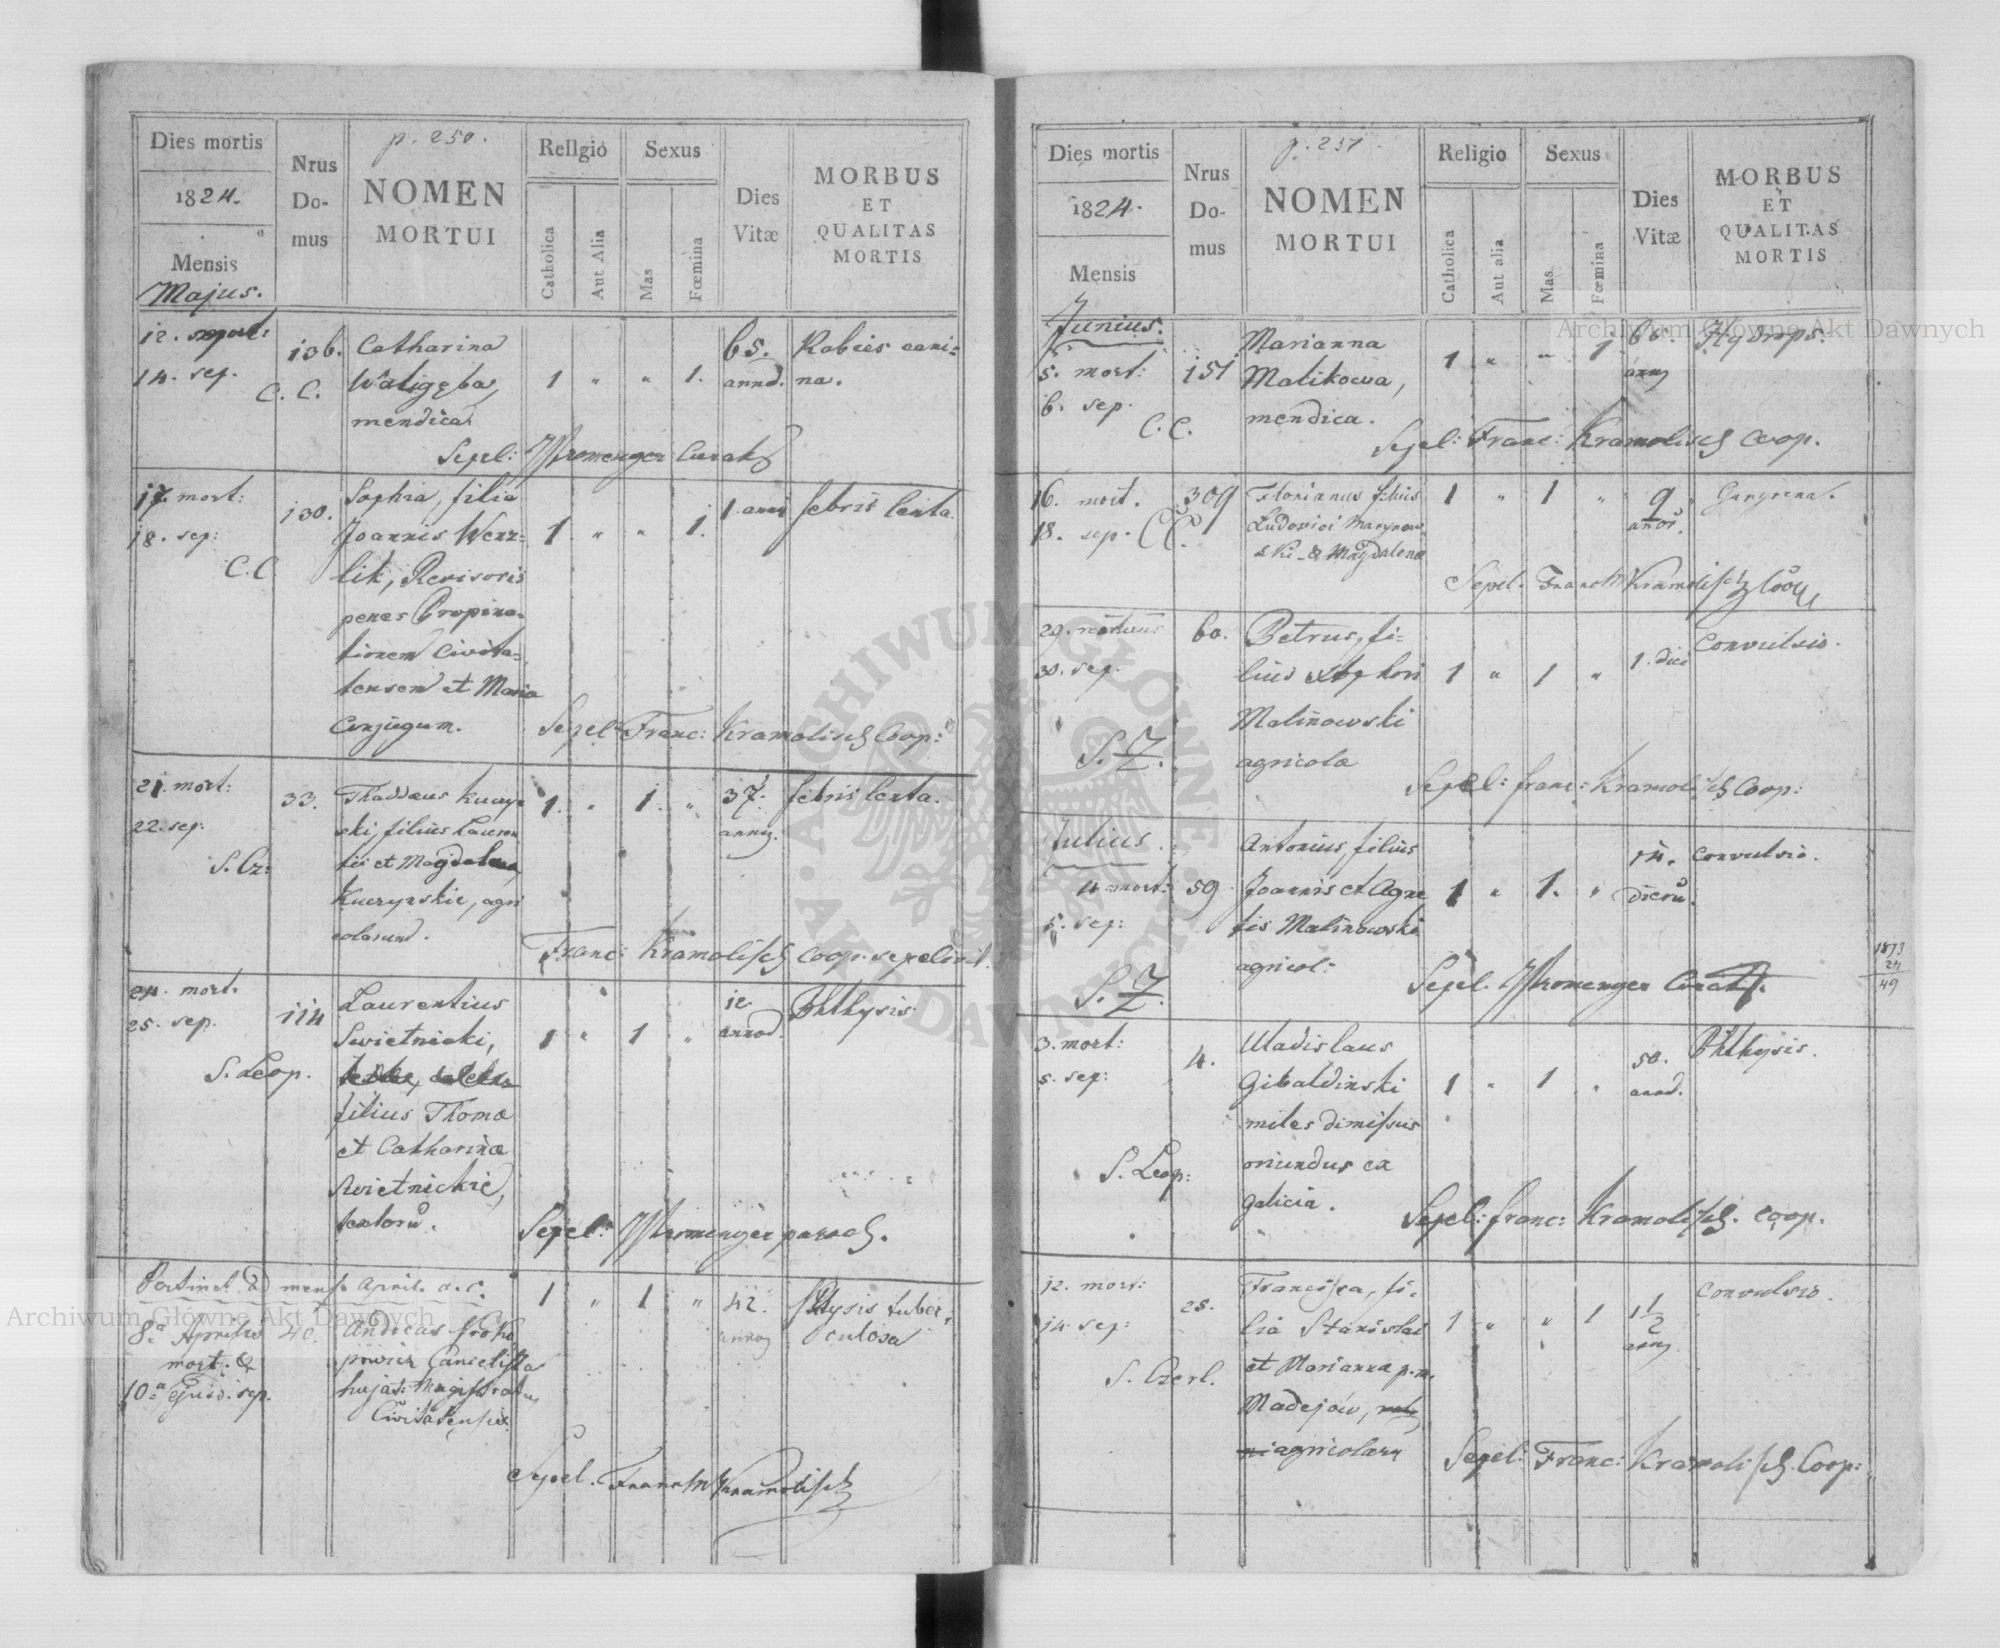 Dies mortis
1824.
Mensis
Majus.
Nrus
Do-
mus
p. 250.
NOMEN
MORTUI
Religio
Catholica
Aut Alia
Sexus
Mas
Fœmina
Dies
Vitæ
MORBUS
ET
QUALITAS
MORTIS
12. mort:
14. sep.
C. C.
136.
Catharina
mendica
1 " " 1.
65.
annor.
Rabies cani-
na.
Sepel: Curat
17. mort:
18. sep:
C. C.
130.
Sophia, filia
Joannis Wenz-
lik, Revisoris
penes Propina-
tionem Civita-
tensem et Maria
Conjugum.
1 " " 1.
1 anni
febris lenta.
Sepel: Franc: Kramolisch Coop:
21. mort:
22. sep:
S. Cz:
33.
Thaddæus Kuczyń
ski, filius Lauren
tii et Magdalena
Kuczyńskie, agri
colarum.
1. " 1. "
37.
annor.
febris lenta.
Franc: Kramolisch coop. sepelivit.
24. mort.
25. sep.
S. Leop.
114
Laurentius
Swietnicki,
filius Thoma
et Catharinæ
Swietnickie,
textorū.
1 " 1 "
12
annor.
Phthysis
Sepel: paroch.
Pertinet ad mens. April. a. c.
8a Aprilis
mort. &
10a ejusd. sep.
40.
Andreas Proko
powicz Cancelista
hujat: Magistratus
Civitatensis.
1 " 1 "
42.
annor
Phtysis tuber-
culosa
Sepel. Kramolisch
Dies mortis
1824.
Mensis
Junius.
Nrus
Do-
mus
p. 251.
NOMEN
MORTUI
Religio
Catholica
Aut alia
Sexus
Mas
Fœmina
Dies
Vitæ
MORBUS
ET
QUALITAS
MORTIS
5. mort:
6. sep.
C. C.
151
Marianna
Malikowa,
mendica.
1 " " 1
60.
Hydrops.
Sepel: Franc: Kramolisch Coop.
16. mort.
18. sep. CC.
309
Florianus filius
Ludovici Marynow
ski & Magdalena
1 " 1 "
9
anor.
Gangrena.
Sepel. Kramolisch Coop
29. mortuus
30. sep.
S. Z.
60.
Petrus, fi-
lius
Malinowski
agricolæ
1 " 1 "
1. diei
Convulsio.
Sepel: franc: Kramolisch Coop:
Julius
4 mort:
5. sep:
S. Z.
59
Antonius, filius
Joannis et Agne
tis Malinowski
agricol:
1 " 1. "
14.
dierū.
Convulsio.
Sepel. Curat.
1873
24
49
3. mort:
5. sep:
S. Leop:
4.
Uladislaus
Gibaldinski
miles dimissus
oriundus ex
Galicia.
1 " 1 "
50.
annor.
Phthysis.
Sepel: franc: Kramolisch. coop.
12. mort:
14. sep:
S. Czerl.
25.
Francisca, fi-
lia Stanislai
et Marianna p.m.
Madejów,
agricolarū
1 " " 1
1 1/2
Convulsio.
Sepel: Franc: Kramolisch. Coop:
Archiwum Główne Akt Dawnych
Archiwum Główne Akt Dawnych
ARCHIWUM GŁÓWNE
AKT DAWNYCH